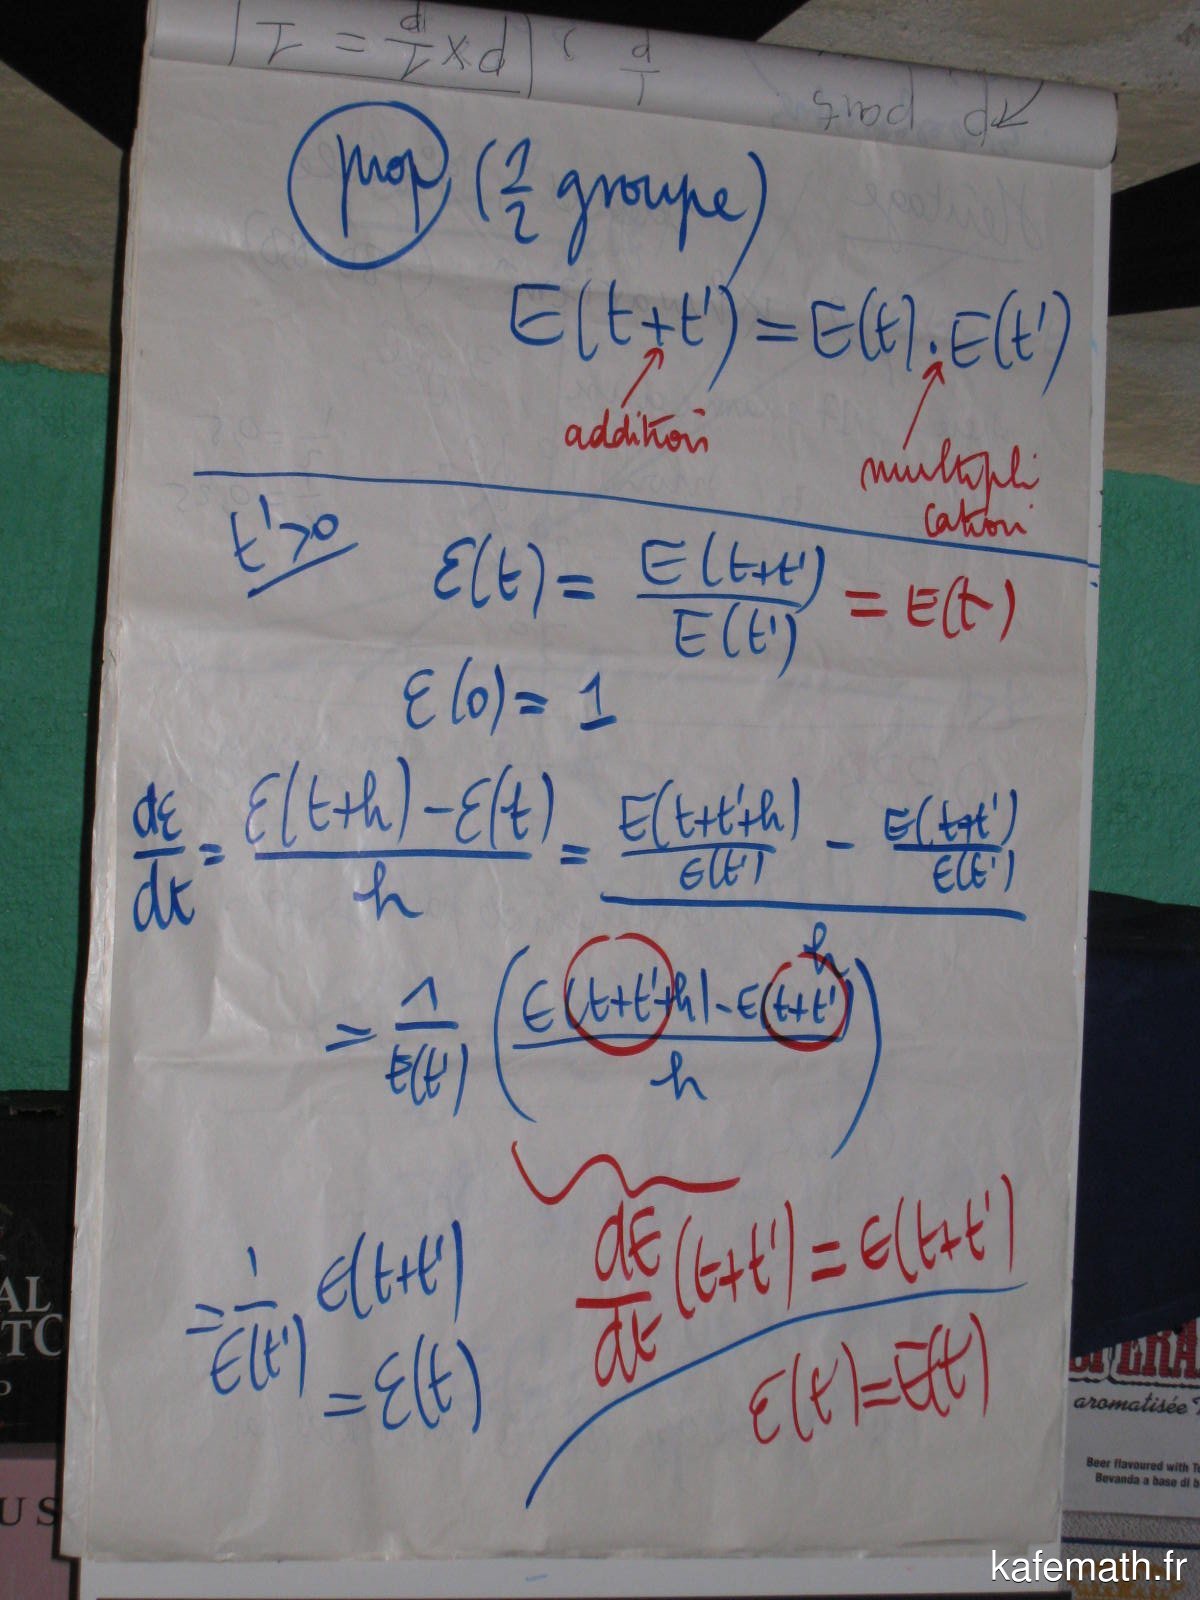 d x 1/d = 1
1/d ?
d parts
prop (1/2 groupe)
E(t+t') = E(t) . E(t')
addition
multipli
cation
t'>0
ε(t) = E(t+t')/E(t') = E(t)
ε(0) = 1
dε/dt = (ε(t+h) - ε(t))/h = (E(t+t'+h)/E(t') - E(t+t')/E(t'))/h
= 1/E(t') (E(t+t'+h) - E(t+t')/h)
= 1/E(t') E(t+t')
dE/dt (t+t') = E(t+t')
= ε(t)
ε(t) = E(t)
AL
TO
US
aromatisée
Beer flavoured with Te
Bevanda a base di b
kafemath.fr